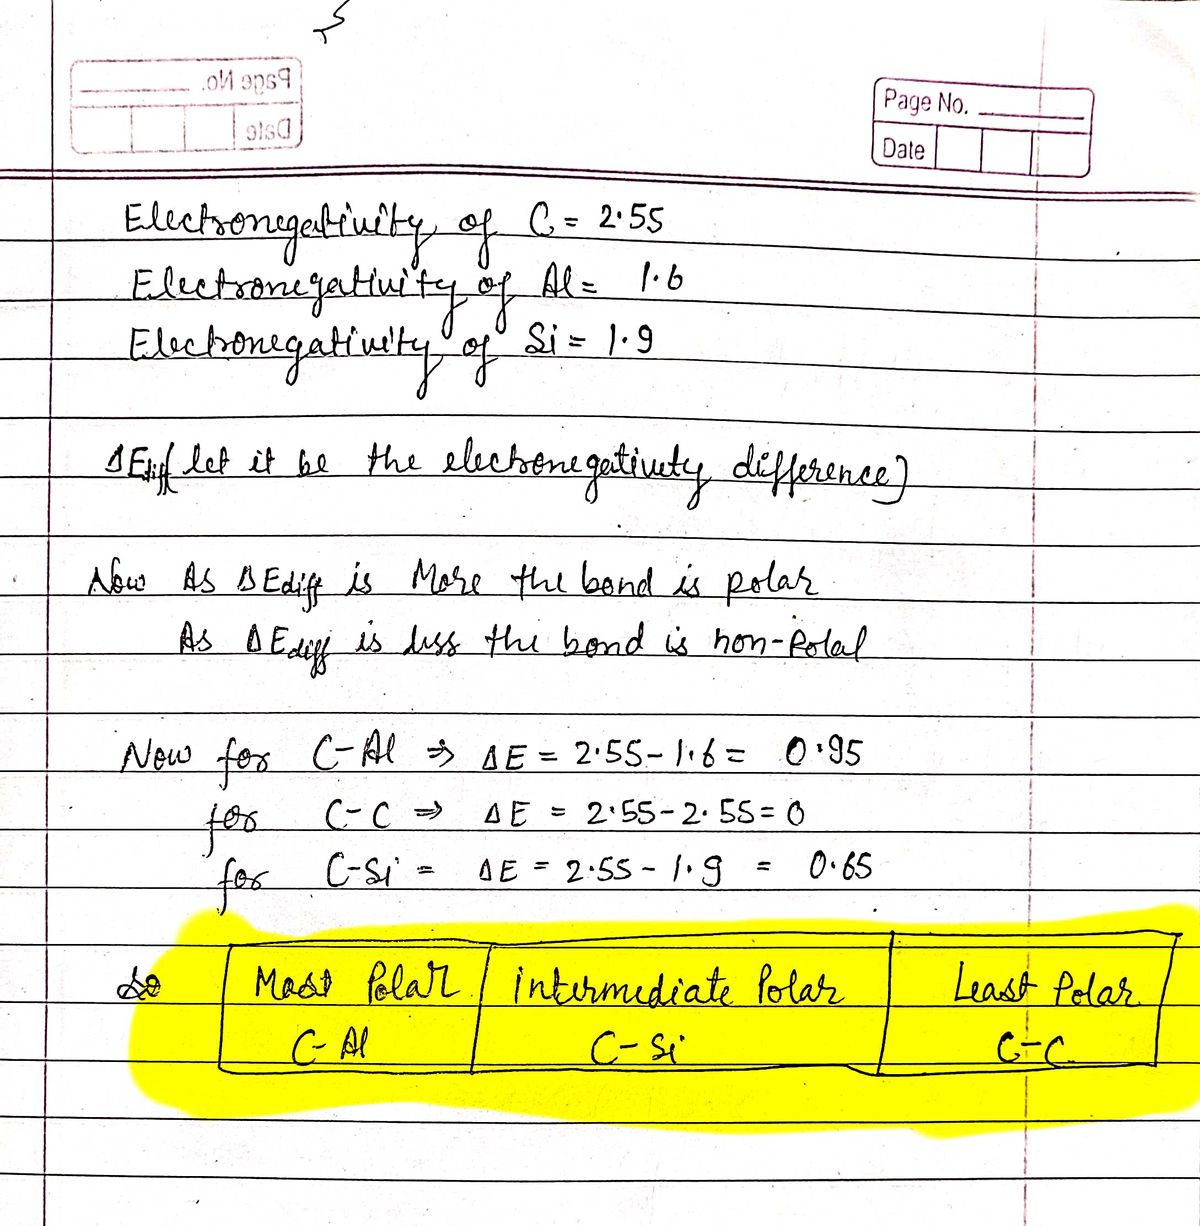 Page No.
Date
Page No.
Date
Electronegativity of C = 2.55
Electronegativity of Al = 1.6
Electronegativity of Si = 1.9
ΔEdiff let it be the electronegativity difference]
Now As ΔEdiff is More the bond is polar
As ΔEdiff is less the bond is non-Polar
Now for C-Al ⇒ ΔE = 2.55-1.6 = 0.95
for C-C ⇒ ΔE = 2.55-2.55=0
for C-Si = ΔE = 2.55-1.9 = 0.65
So Most Polar intermediate Polar Least Polar
C-Al C-Si C-C